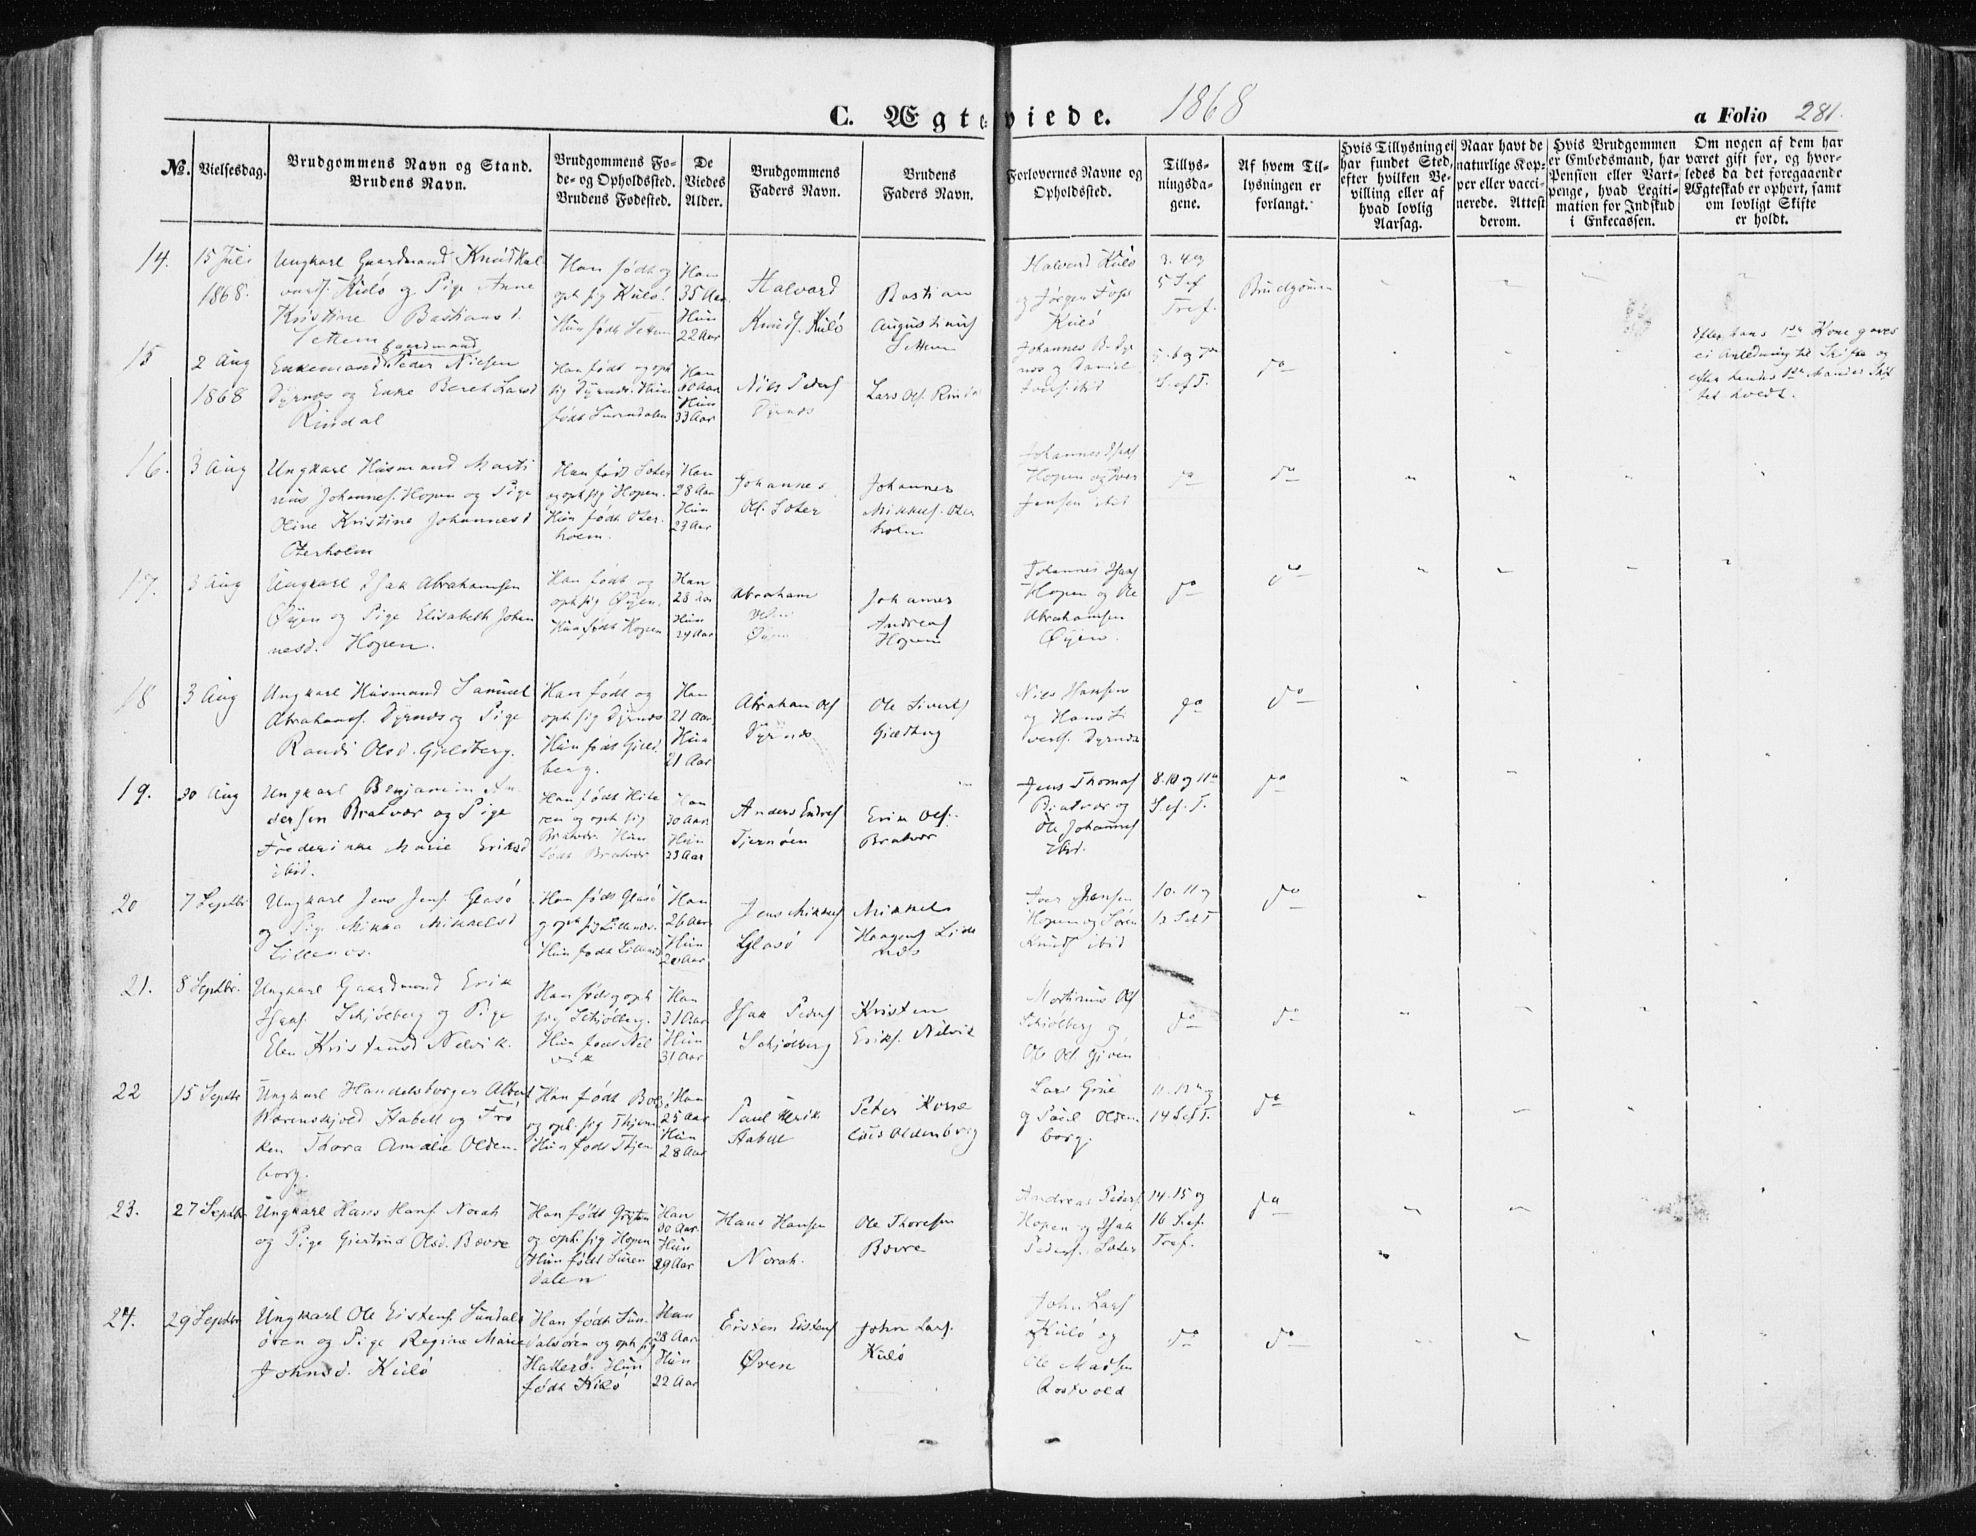 C. Ægteviede. 1868
a Folio 281.
No.
Vielsesdag.
Brudgommens Navn og Stand.
Brudens Navn.
Brudgommens Fo-
de- og Opholdssted.
Brudens Fødested.
De
Viedes
Alder.
Brudgommens
Faders Navn.
Brudens
Faders Navn.
Forlovernes Navne og
Opholdssted.
Tillys-
ningsda-
gene.
Af hvem Til-
lysningen er
forlangt.
Hvis Tillysning ei
har fundet Sted,
efter hvilken Be-
villing eller af
hvad lovlig
Aarsag.
Naar havt de
naturlige Kop-
per eller vacci-
nerede. Attest
derom.
Hvis Brudgommen
er Embedsmand, har
Pension eller Vart-
penge, hvad Legiti-
mation for Indskud
i Enkecassen.
Om nogen af dem har
været gift for, og hvor-
ledes da det foregaaende
Ægteskab er ophort, samt
om lovligt Skifte
er holdt.
14.
15 Juli
1868.
Ungkarl Gaardmand Knud Hal-
vards. Kulø og Pige Anne
Kristine Bastiansd.
Settem
Han født og
oph sig Kulø.
Hun født Settem
Han
35 Aar
Hun
22 Aar
Halvard
Knuds. Kulø
Bastian
Augustinus
Settem
Halvard Kulø
og Jørgen Foss
Kulø
3. 4 og
5 S ef
Tref.
Brudgommen
15
2 Aug
1868
Gaardmand
Enkemand Peder Nielsen
Dyrnæs og Enke Beret Larsd
Rindal
Han født og oph
sig Dyrnæs. Hun
født Surendalen
Han
60 Aar
Hun
33 Aar
Niels Peders
Dyrnæs
Lars Ols. Rindal
Johannes B. Dyr
næs og Daniel
ibid
5. 6 og 7de
S. ef T.
do
Efter hans 1ste Kone gaves
ei Anledning til Skifte og
efter hendes 1ste Mand er Skif
tet holdt.
16.
3 Aug
Ungkarl Husmand Marti
nus Johannes. Hopen og Pige
Oline Kristine Johannesd
Oterholm
Han født Soter
og oph sig Hopen.
Hun født Oter-
holm.
Han
28 Aar
Hun
23 Aar
Johannes
Ols. Soter
Johannes
Mikkels. Oter
holm
Johannes Isaks
Hopen og Iver
Jensen ibid
do
do
17.
3 Aug
Ungkarl Isak Abrahamsen
Øyen og Pige Elisabeth Johan
nesd. Hopen.
Han født og
oph sig Øyen.
Hun født Hopen
Han
28 Aar
Hun
24 Aar
Abraham
Øyen
Johannes
Andreas
Hopen
Johannes Isaks
Hopen og Ole
Abrahamsen
Øyen.
do
do
18
3 Aug
Ungkarl Husmand Samuel
Abrahams. Dyrnæs og Pige
Randi Olsd. Gjelberg.
Han født og
oph sig Dyrnæs
Hun født Gjel
berg.
Han
21 Aar
Hun
21 Aar
Abraham Ols
Dyrnæs
Ole Siverts
Niels Hansen
og Hans Si
verts. Dyrnæs
do
do
19.
30 Aug
Ungkarl Benjamin An
dersen Bratvær og Pige
Frederikke Marie Eriksd
ibid.
Han født Hitte
ren og oph sig
Bratvær. Hun
født Bratvær
Han
30 Aar
Hun
23 Aar
Anders Endres
Tjernøen
Erik Ols.
Bratvær
Jens Thomas
Bratvær og
Ole Johannes
ibid.
8. 10 og 11te
S. ef. T.
do
20
7 Septbr
Ungkarl Jens Jens. Glasø
og Pige Mikka Mikkelsd
Lillenæs.
Han født Glasø
og oph sig Lillenæs.
Hun født Lillenæs
Han
26 Aar
Hun
20 Aar
Jens Mikkels
Glasø
Mikkel
Haagens Lille
næs
Iver Jensen
Hopen og Søren
Knuds ibid
10. 11 og
12 S ef T
do
21.
8 Septbr.
Ungkarl Gaardmand Erik
Isaks. Schjølberg og Pige
Elen Kristensd Nelvik.
Han født og oph
sig Schjølberg.
Hun født Nel
vik
Han
31 Aar
Hun
31 Aar
Isak Peders
Schjølberg
Kristen
Eriks. Nelvik
Martinus Ols
Schjølberg og
Ole Ols.
do
do
22
15 Septbr
Ungkarl Handelsborger Albert
Værenskjold Stabell og Frø
ken Thora Amalie Olden-
borg.
Han født
og oph. sig
Hun født
Han
25 Aar
Hun
28 Aar
Paul Ulrik
Stabell
Peter
Oldenborg
Lars
og Poul Olden
borg.
11. 13de og
14 S ef T.
do
23.
27 Septbr
Ungkarl Hans Hans. Norah
og Pige Gjertrud Olsd. Bævre
Han født
og oph. sig Hopen
Hun født Suren
dalen
Han
30 Aar
Hun
29 Aar
Hans Hansen
Norah.
Ole Thoresen
Bævre
Andreas Peders.
Hopen og Isak
Peders. Soter
14. 15 og
16 S. ef.
Tref.
do
24.
29 Septbr
Ungkarl Ole Eistens. Sundals
øren og Pige Regine Marie
Johnsd. Kulø
Han født Sun-
dalsøren og oph sig
Hallerø. Hun
født Kulø
Han
28 Aar
Hun
22 Aar
Eisten Eistens
Øren
John Lars.
Kulø
John Lars
Kulø og
Ole Madsen
Rostvold
do
do